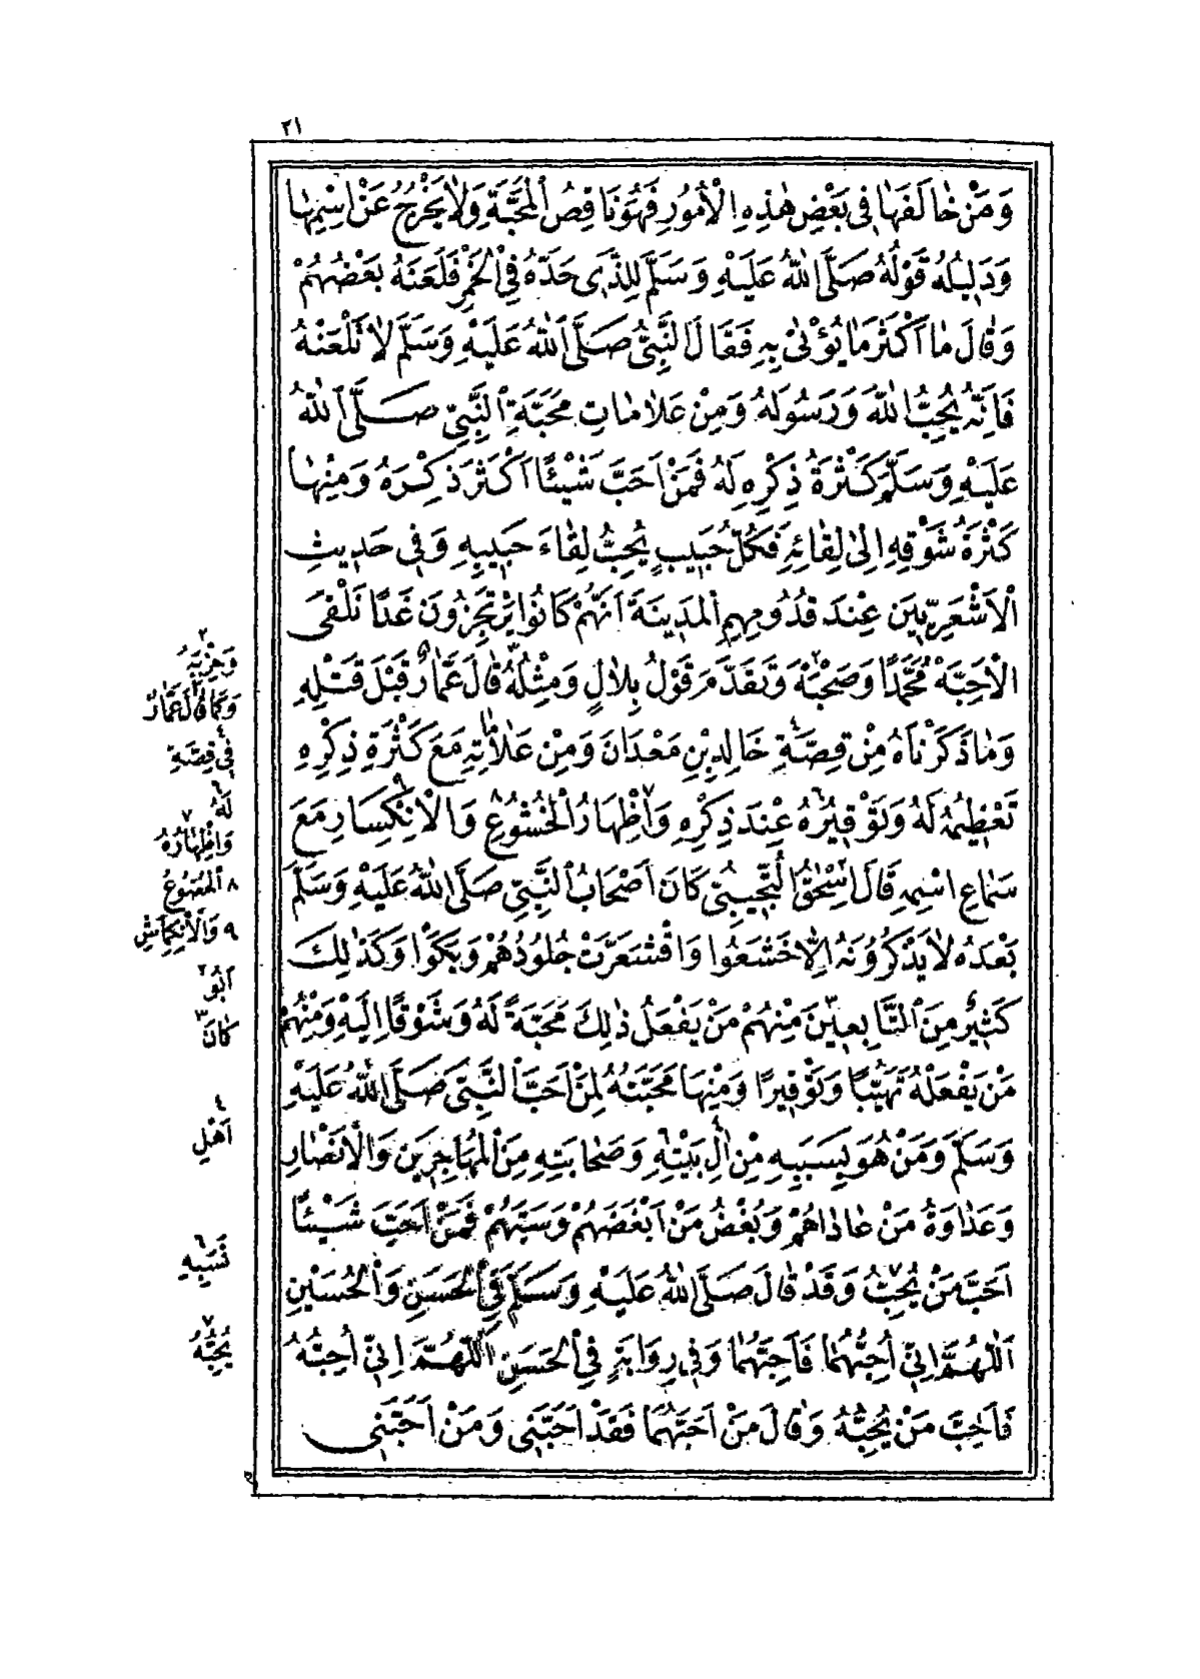 ٢١
وَمَنْ خَالَفَهَا فِي بَعْضِ هٰذِهِ الْأُمُورِ فَهُوَ نَاقِصُ الْمَحَبَّةِ وَلَا يَخْرُجُ عَنْ اِسْمِهَا
وَدَلِيلُهُ قَوْلُهُ صَلَّى اللهُ عَلَيْهِ وَسَلَّمَ لِلَّذِي حَدَّهُ فِي الْخَمْرِ فَلَعَنَهُ بَعْضُهُمْ
وَقَالَ مَا أَكْثَرَ مَا يُؤْتٰى بِهِ فَقَالَ النَّبِيُّ صَلَّى اللهُ عَلَيْهِ وَسَلَّمَ لَا تَلْعَنْهُ
فَاِنَّهُ يُحِبُّ اللهَ وَرَسُولَهُ وَمِنْ عَلَامَاتِ مَحَبَّةِ النَّبِيِّ صَلَّى اللهُ
عَلَيْهِ وَسَلَّمَ كَثْرَةُ ذِكْرِهِ لَهُ فَمَنْ اَحَبَّ شَيْئًا اَكْثَرَ ذِكْرَهُ وَمِنْهَا
كَثْرَةُ شَوْقِهِ اِلٰى لِقَائِهِ فَكُلُّ حَبِيبٍ يُحِبُّ لِقَاءَ حَبِيبِهِ وَفِي حَدِيثِ
الْاَشْعَرِيِّينَ عِنْدَ قُدُومِهِمِ الْمَدِينَةَ اَنَّهُمْ كَانُوا يَرْتَجِزُونَ غَدًا نَلْقَى
الْاَحِبَّهْ مُحَمَّدًا وَصَحْبَهْ ٢ وَتَقَدَّمَ قَوْلُ بِلَالٍ وَمِثْلُهُ قَالَ عَمَّارٌ قَبْلَ قَتْلِهِ
وَمَا ذَكَرْنَاهُ مِنْ قِصَّةِ ٤ خَالِدِ بْنِ مَعْدَانَ وَمِنْ عَلَامَاتِهِ مَعَ كَثْرَةِ ذِكْرِهِ
تَعْظِيمُهُ لَهُ وَتَوْقِيرُهُ ٦ عِنْدَ ذِكْرِهِ وَاِظْهَارُ ٧ الْخُشُوعِ ٨ وَالْاِنْكِسَارِ ٩ مَعَ
سَمَاعِ اسْمِهِ قَالَ اِسْحٰقُ التُّجِيبِيُّ كَانَ اَصْحَابُ النَّبِيِّ صَلَّى اللهُ عَلَيْهِ وَسَلَّمَ
بَعْدَهُ لَا يَذْكُرُونَهُ اِلَّا خَشَعُوا وَاقْشَعَرَّتْ جُلُودُهُمْ وَبَكَوْا وَكَذٰلِكَ
كَثِيرٌ مِنَ التَّابِعِينَ ٣ مِنْهُمْ مَنْ يَفْعَلُ ذٰلِكَ مَحَبَّةً لَهُ وَشَوْقًا اِلَيْهِ وَمِنْهُمْ
مَنْ يَفْعَلُهُ تَهَيُّبًا وَتَوْقِيرًا وَمِنْهَا مَحَبَّتُهُ لِمَنْ اَحَبَّ النَّبِيَّ صَلَّى اللهُ عَلَيْهِ
وَسَلَّمَ وَمَنْ هُوَ بِسَبَبِهِ مِنْ اٰلِ بَيْتِهِ وَصَحَابَتِهِ مِنَ الْمُهَاجِرِينَ وَالْاَنْصَارِ
وَعَدَاوَةُ مَنْ عَادَاهُمْ وَبُغْضُ مَنْ اَبْغَضَهُمْ وَسَبَّهُمْ فَمَنْ اَحَبَّ شَيْئًا
اَحَبَّ مَنْ يُحِبُّ ٧ وَقَدْ قَالَ صَلَّى اللهُ عَلَيْهِ وَسَلَّمَ فِي الْحَسَنِ وَالْحُسَيْنِ
اَللّٰهُمَّ اِنِّي اُحِبُّهُمَا فَاَحِبَّهُمَا وَفِي رِوَايَةٍ فِي الْحَسَنِ اَللّٰهُمَّ اِنِّي اُحِبُّهُ
فَاَحِبَّ مَنْ يُحِبُّهُ وَقَالَ مَنْ اَحَبَّهُمَا فَقَدْ اَحَبَّنِي وَمَنْ اَحَبَّنِي
٢ وَحِزْبَهُ
وَكَمَا قَالَ عَمَّارٌ
٤ فِي قِصَّةِ
٦ لَهُ
٧ وَاِظْهَارُهُ
٨ الْخُضُوعُ
٩ وَالْاِنْكِمَاشِ
٢ اَبُو
٣ كَانَ
٤ اَهْلِ
٦ نَسَبِهِ
٧ يُحِبُّهُ